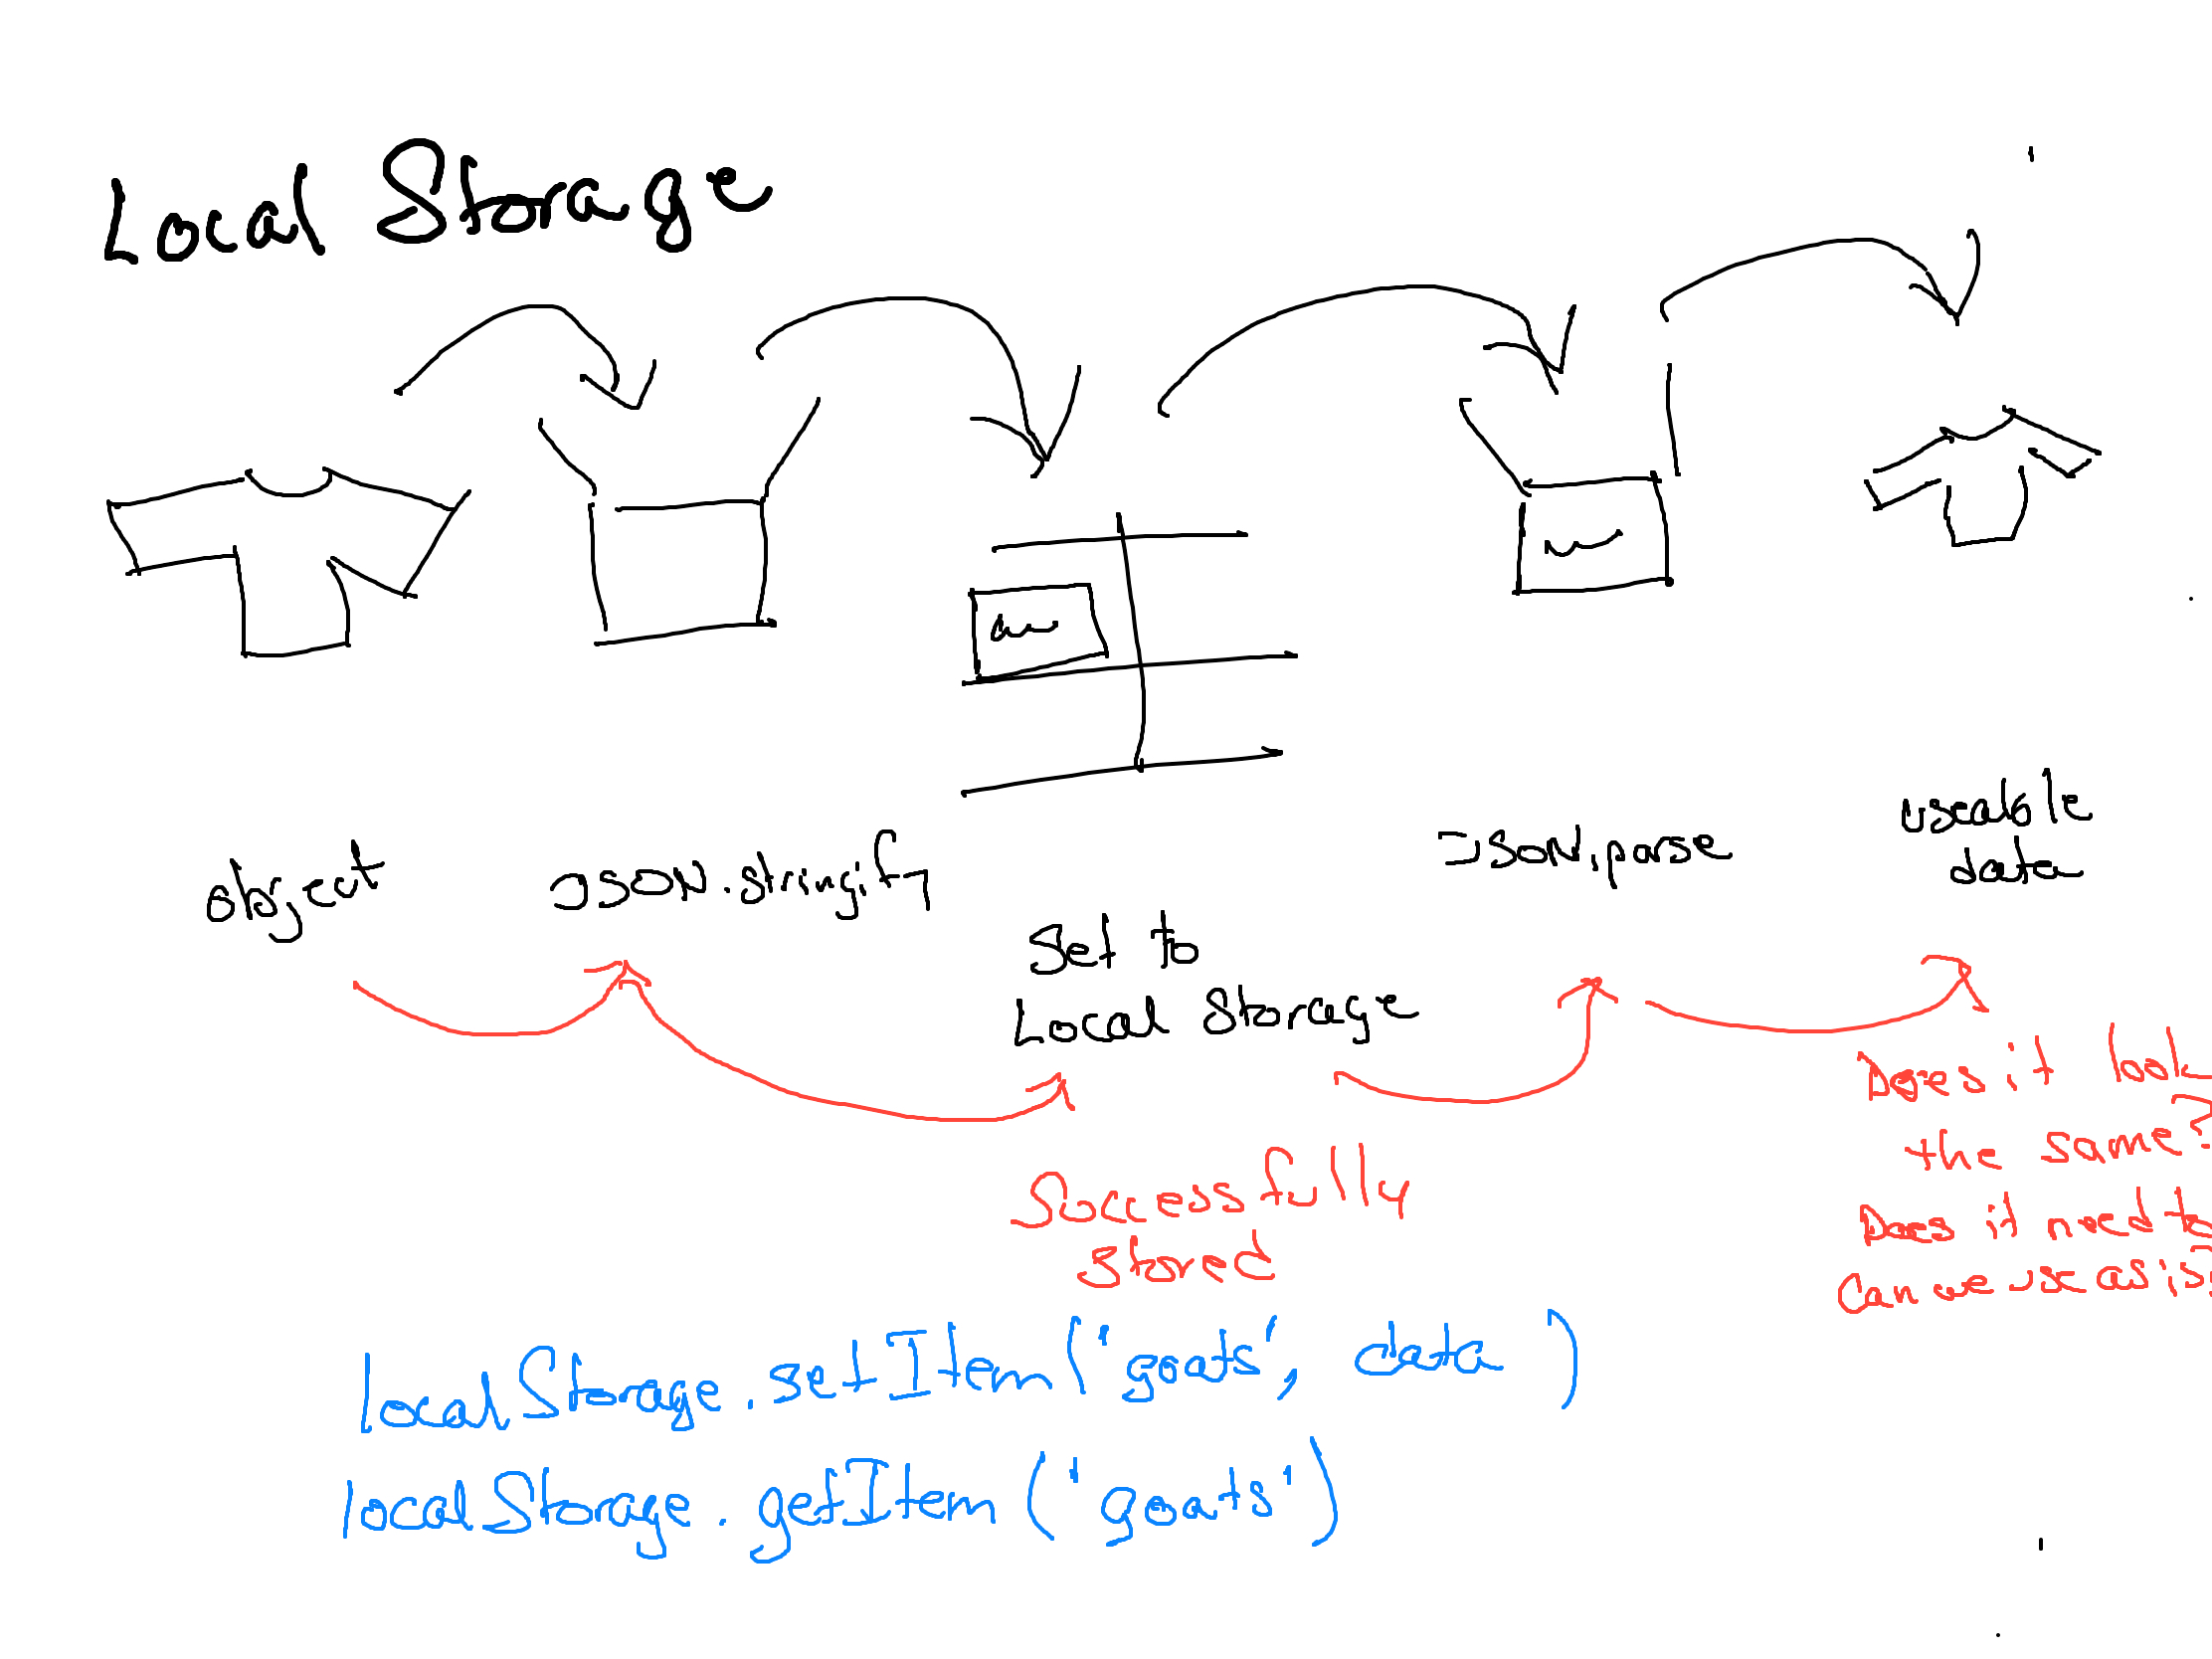 Local Storage
object
JSON.stringify
Set to
Local Storage
JSON.parse
useable
data
Successfully
stored
Does it look
the same?
Does it need to
Can we use as is
localStorage.setItem('goats', data )
localStorage.getItem('goats')